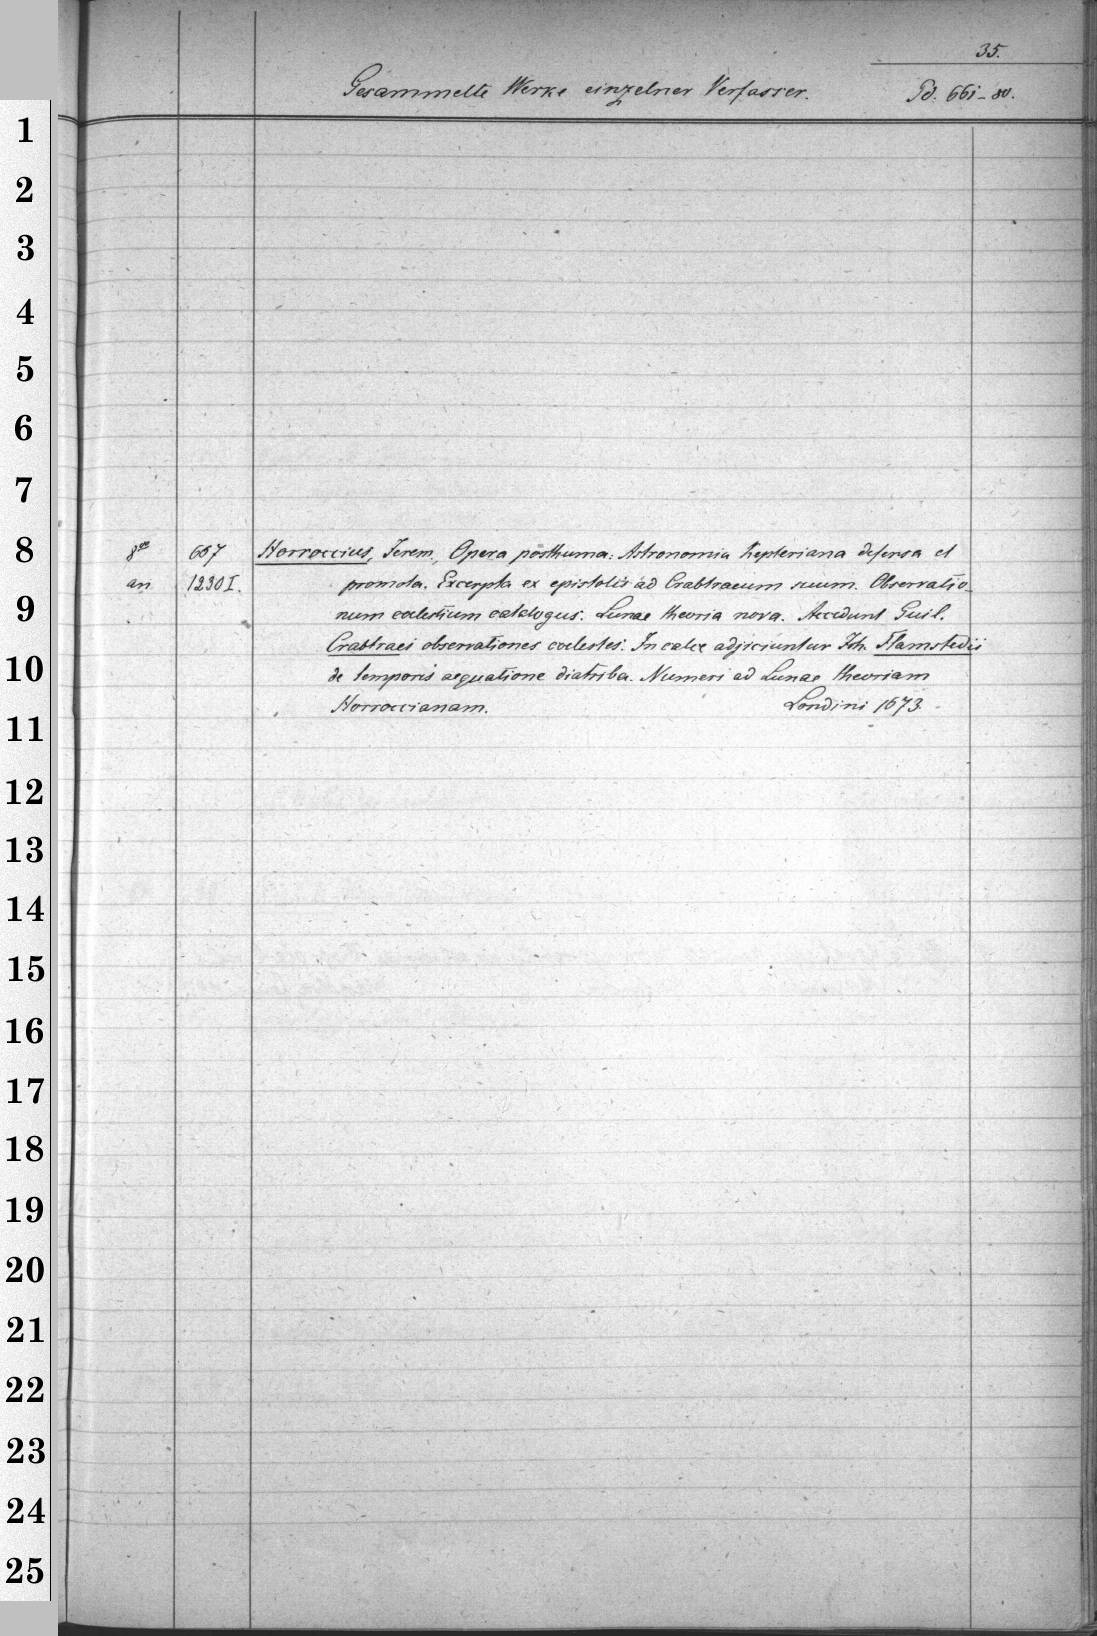 35.
Gesammelte Werke einzelner Verfasser. Pd. 661-80.
1
2
3
4
5
6
7
8
9
10
11
12
13
14
15
16
17
18
19
20
21
22
23
24
25
667 Horroccius, Jerem., Opera posthuma: Astronomia Kepleriana defensa et
an 1230 I. promota. Excerpta ex epistolis ad Crabtraeum suum. Observatio-
num coelestium catalogus. Lunae theoria nova. Accedunt Guil.
Crabtraei observationes coelestes. In calce adjiciuntur Joh. Flamstedii
de temporis aequatione diatriba. Numeri ad Lunae theoriam
Horroccianam. Londini 1673.